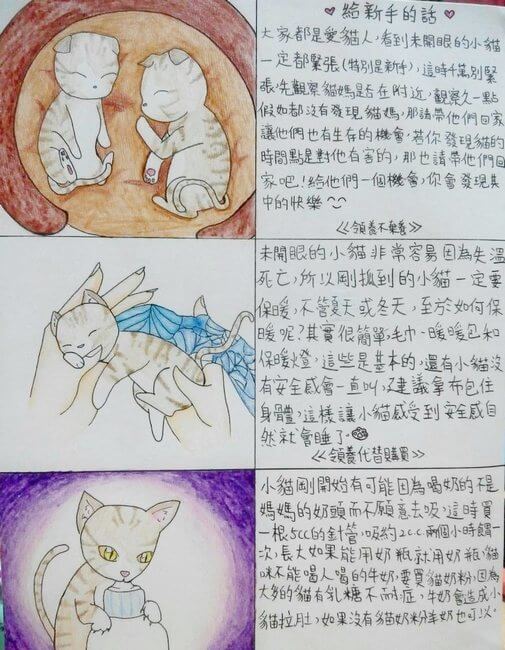 給新手的話
大家都是愛貓人，看到未開眼的小貓
一定都緊張(特別是新手)，這時千萬別緊
張，先觀察貓媽是否在附近，觀察久一點
假如都沒有發現貓媽，那請帶他們回家
讓他們也有生存的機會，若你發現貓的
時間點是對他有害的，那也請帶他們回
家吧！給他們一個機會，你會發現其
中的快樂
≪領養不棄養≫
未開眼的小貓非常容易因為失溫
死亡，所以剛抓到的小貓一定要
保暖，不管夏天或冬天，至於如何保
暖呢？其實很簡單，毛巾、暖暖包和
保暖燈，這些是基本的，還有小貓沒
有安全感會一直叫，建議拿布包住
身體，這樣讓小貓感受到安全感自
然就會睡了。
≪領養代替購買≫
小貓剛開始有可能因為喝奶的不是
媽媽的奶頭而不願意去吸，這時買
一根.5cc的針管，吸約2c.c兩個小時餵一
次，長大如果能用奶瓶就用奶瓶，貓
咪不能喝人喝的牛奶，要買貓奶粉，因為
大多的貓有乳糖不耐症，牛奶會造成小
貓拉肚，如果沒有貓奶粉羊奶也可以。